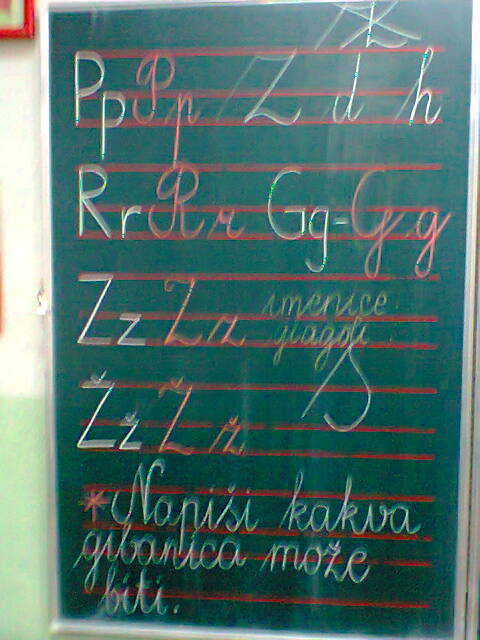 Z
Pp Pp Z d h
Rr Rr Gg-Gg
Zz Zz imenice
glagoli
Žž Žž
*Napiši kakva
gibanica može
biti.